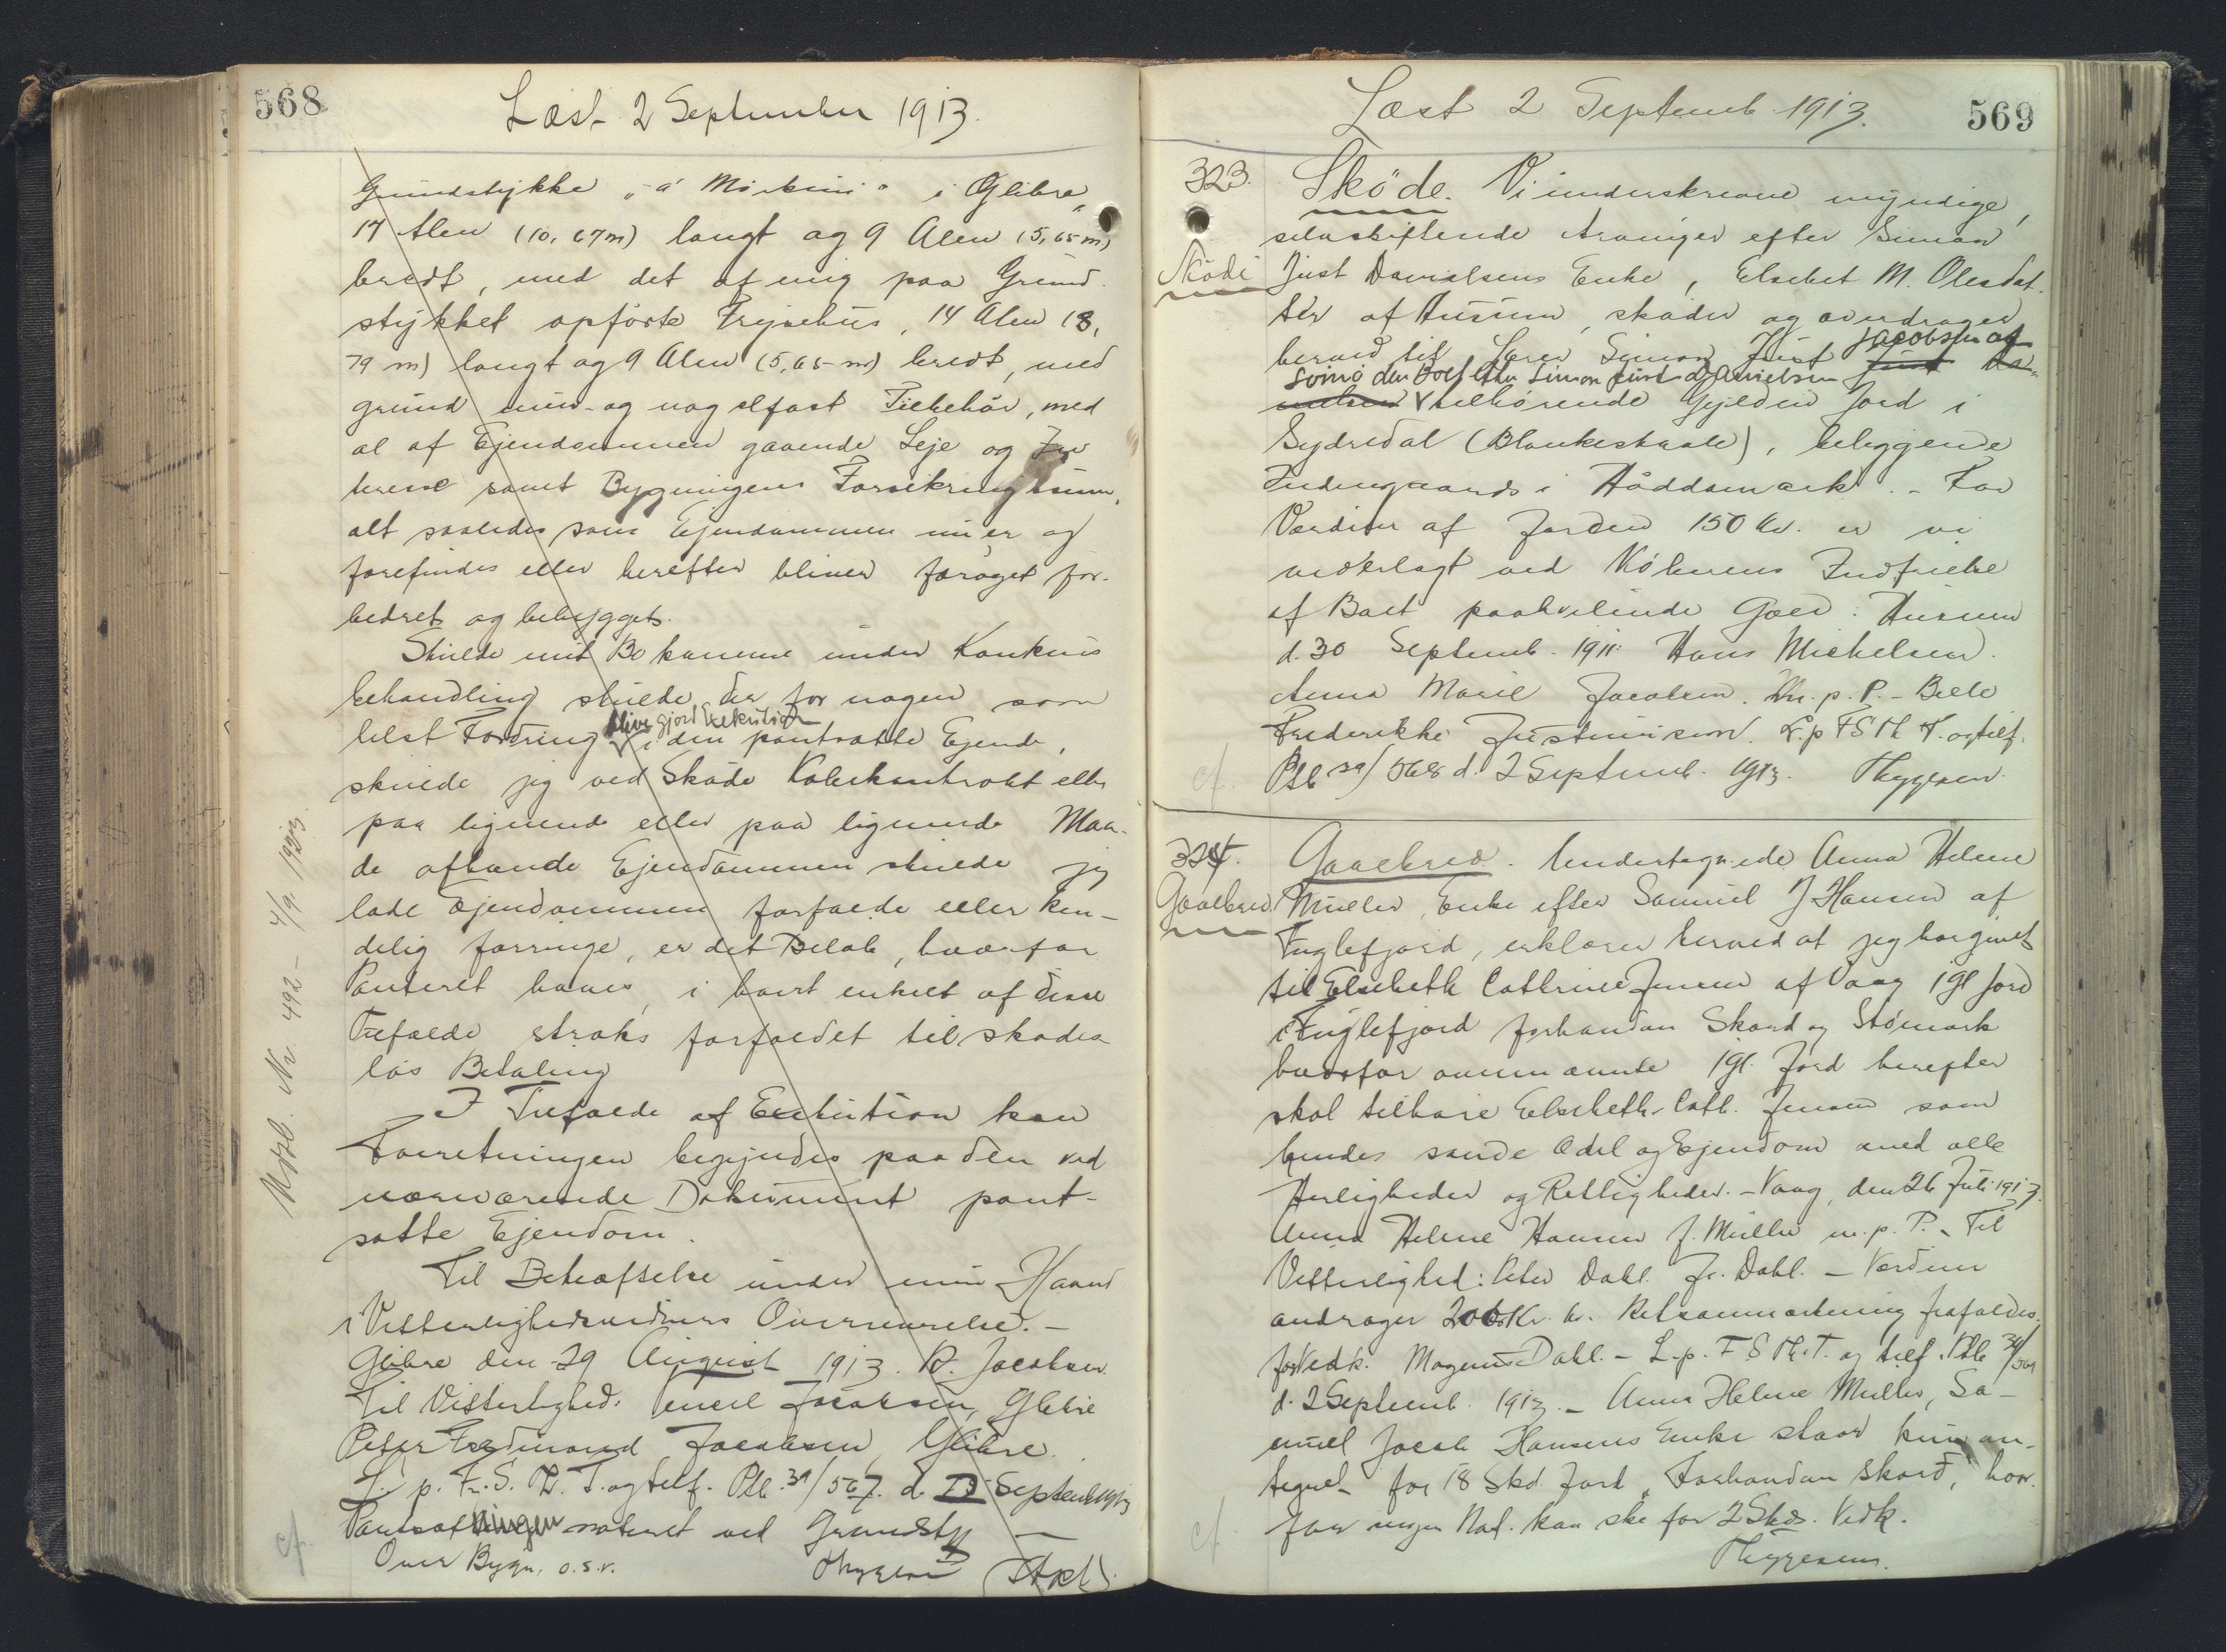 568
Læst 2 September 1913.
Grundstykke "á Mörkini" i Glibre,
17 Alen (10,67 m) langt og 9 Alen (5,65 m)
bredt, med det af mig paa Grund-
stykket opförte Frysehus, 14 Alen (8,
79 m) langt og 9 Alen (5,65 m) bredt, med
grund mur- og nagelfast Tilbehör, med
al af Ejendommen gaaende Leje og In-
teresse samt Bygningens Forsikringssum,
alt saaledes som Ejendommen nu er og
forefindes eller herefter bliver foröget for-
bedret og bebygget.
Skulde mit Bo komme under Konkurs
behandling skulde der for nogen som
blive gjort Exekution
helst Fordring i den pantsatte Ejendo,
skulde jeg ved Sköde Köbekontrakt eller
paa lignende eller paa lignende Maa-
de afhænde Ejendommen skulde jeg
lade Ejendommen forfalde eller ken-
delig forringe, er det Belöb, hvorfor
Panteret haves, i hvert enkelt af disse
Tilfælde straks forfaldet til skades-
lös Betaling
I Tilfælde af Exekution kan
Forretningen begyndes paa den ved
nærværende Dokument pant-
satte Ejendom.
Til Bekræftelse under min Haand
i Vitterlighedsvidners Overværelse.-
Glibre den 29 August 1913. R. Jacobsen
Til Vitterlighed: Jacobsen, Glibre
Peter Ferdinand Jacobsen Glibre.
L. p. F. S. Th. T. og tilf. Ptb. 39/567. d. 2 Septemb 1913
Pantsætningen noteret ved Grundst
Over Bygn. o.s.v.
Thygesen
Udsl. Nr. 492 - 4/9 1923.
cf.
569
Læst 2 Septemb. 1913.
323.
Sköde
Sköde. Vi underskrevne myndige,
selvskiftende Arvinger efter Simon
Just Danielsens Enke, Elsebet M. Olesdat-
ter af Husum, sköder og overdrager
herved til Lærer Simon Just Jacobsen af
den Boet efter Simon Just Danielsen Just Da-
nielsen tilhörende Gylden Jord i
Sydredal (Blankeskaale), beliggende
Indengaards i Höddemark. - For
Værdien af Jorden 150 Kr. er vi
vederlagt ved Köberens Indfrielse
af Boet paahvilende Gæld. Husum
d. 30 Septemb. 1911. Hans Michelsen.
Anna Marie Jacobsen. m. p. P. - Bille
Frederikke Justinussen. L. p. F S Th T. og tilf.
Ptb 39/568 d. 2 Septemb. 1913. Thygesen.
cf.
324.
Gavebrev
Gavebrev. Undertegnede Anna Helene
Müller, Enke efter Samuel J Hansen af
Fuglefjord, erklærer herved at jeg har givet
til Elsebeth Cathrine Jensen af Vaag 1 gl Jord
i Fuglefjord forhandan Skard og Stömark
hvorfor ovennævnte 1 gl. Jord herefter
skal tilhøre Elsebeth Cath. Jensen som
hendes sande Odel og Ejendom med alle
Herligheder og Rettigheder. - Vaag, den 26 Juli 1913.
Anna Helene Hansen f. Müller m. p. P. - Til
Vitterlighed: Peter Dahl. Jr. Dahl. - Værdien
andrager 200 Kr. Retsanmærkning frafaldes
for Vedk. Magnus Dahl. - L. p. F. S Th. T. og tilf. Ptb 39/569
d. 2 Septemb. 1913. - Anna Helene Müller, Sa-
muel Jacob Hansens Enke staar kun an-
tegnet for 18 Skd. Jord "Forhandan Skard", hvor-
for ingen Not. kan ske for 2 Skds. Vedk.
Thygesen.
cf